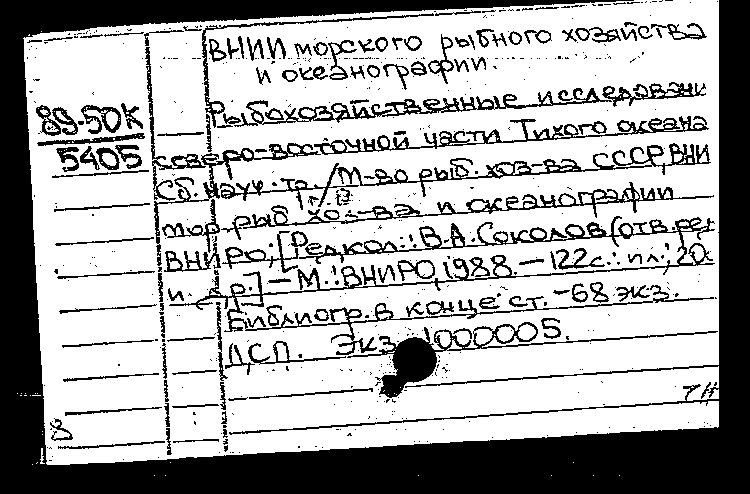 ВНИИ морского рыбного хозяйства
и океанографии.
89-50К
5405
Рыбохозяйственные исследовани
северо-восточной части Тихого океана
Сб. науч. тр. / М-во рыб. хоз-ва СССР, ВНИИ
мор. рыб. хоз-ва и океанографии
ВНИРО; [Редкол.: В.А. Соколов (отв. ред
и др.] - М.: ВНИРО, 1988. - 122 с.: ил.; 20с
Библиогр. в конце ст. - 68 экз.
ДСП. Экз. 000005.
8